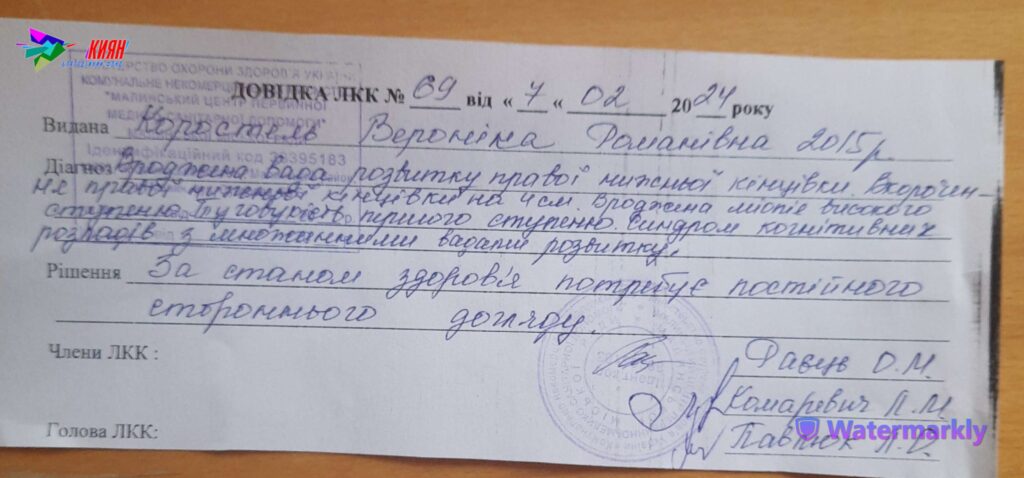 КИЯН
МІНІСТЕРСТВО ОХОРОНИ ЗДОРОВ'Я УКРАЇНИ
КОМУНАЛЬНЕ НЕКОМЕРЦ
"МАЛИНСЬКИЙ ЦЕНТР ПЕРВИННОЇ
МЕДИКО-САНІТАРНОЇ ДОПОМОГИ"
Ідентифікаційний код 38395183
ДОВІДКА ЛКК № 69 від « 7 « 02 2024 року
Видана Коростель Вероніка Романівна 2015р.
Діагноз Вроджена вада розвитку правої нижньої кінцівки. Вкорочен-
ня правої нижньої кінцівки на 4см. Вроджена міопія високого
ступеню. Туговухість першого ступеню. Синдром когнітивних
розладів з множинними вадами розвитку.
Рішення За станом здоров'я потребує постійного
стороннього догляду.
Члени ЛКК :
О.М.
Комаревич Л.М
Голова ЛКК:
Watermarkly